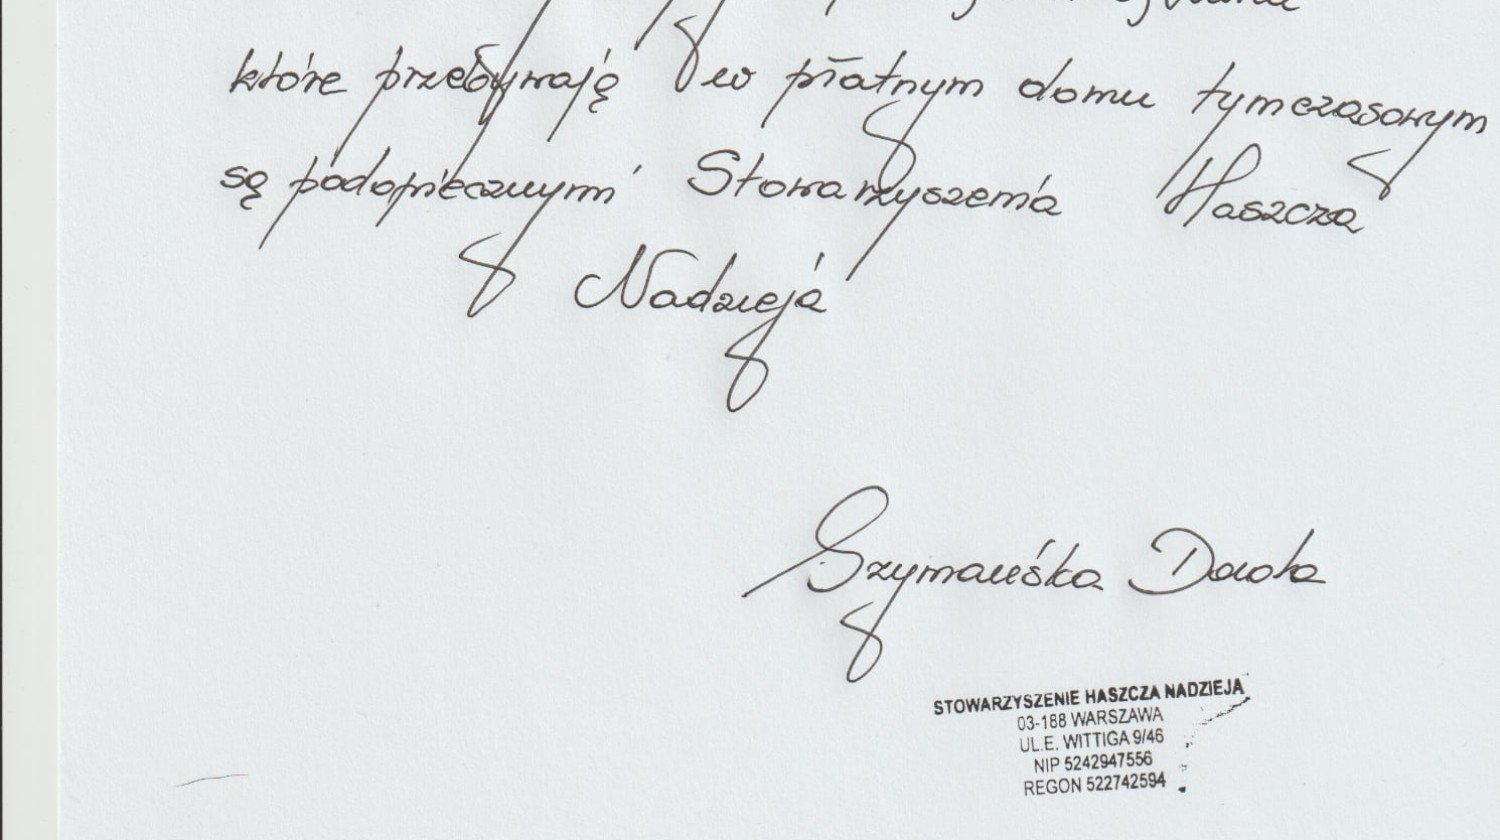 które przebywają w płatnym domu tymczasowym
są podopiecznymi Stowarzyszenia Haszcza
Nadzieja
Szymańska Dorota
STOWARZYSZENIE HASZCZA NADZIEJA
03-188 WARSZAWA
UL.E. WITTIGA 9/46
NIP 5242947556
REGON 522742594